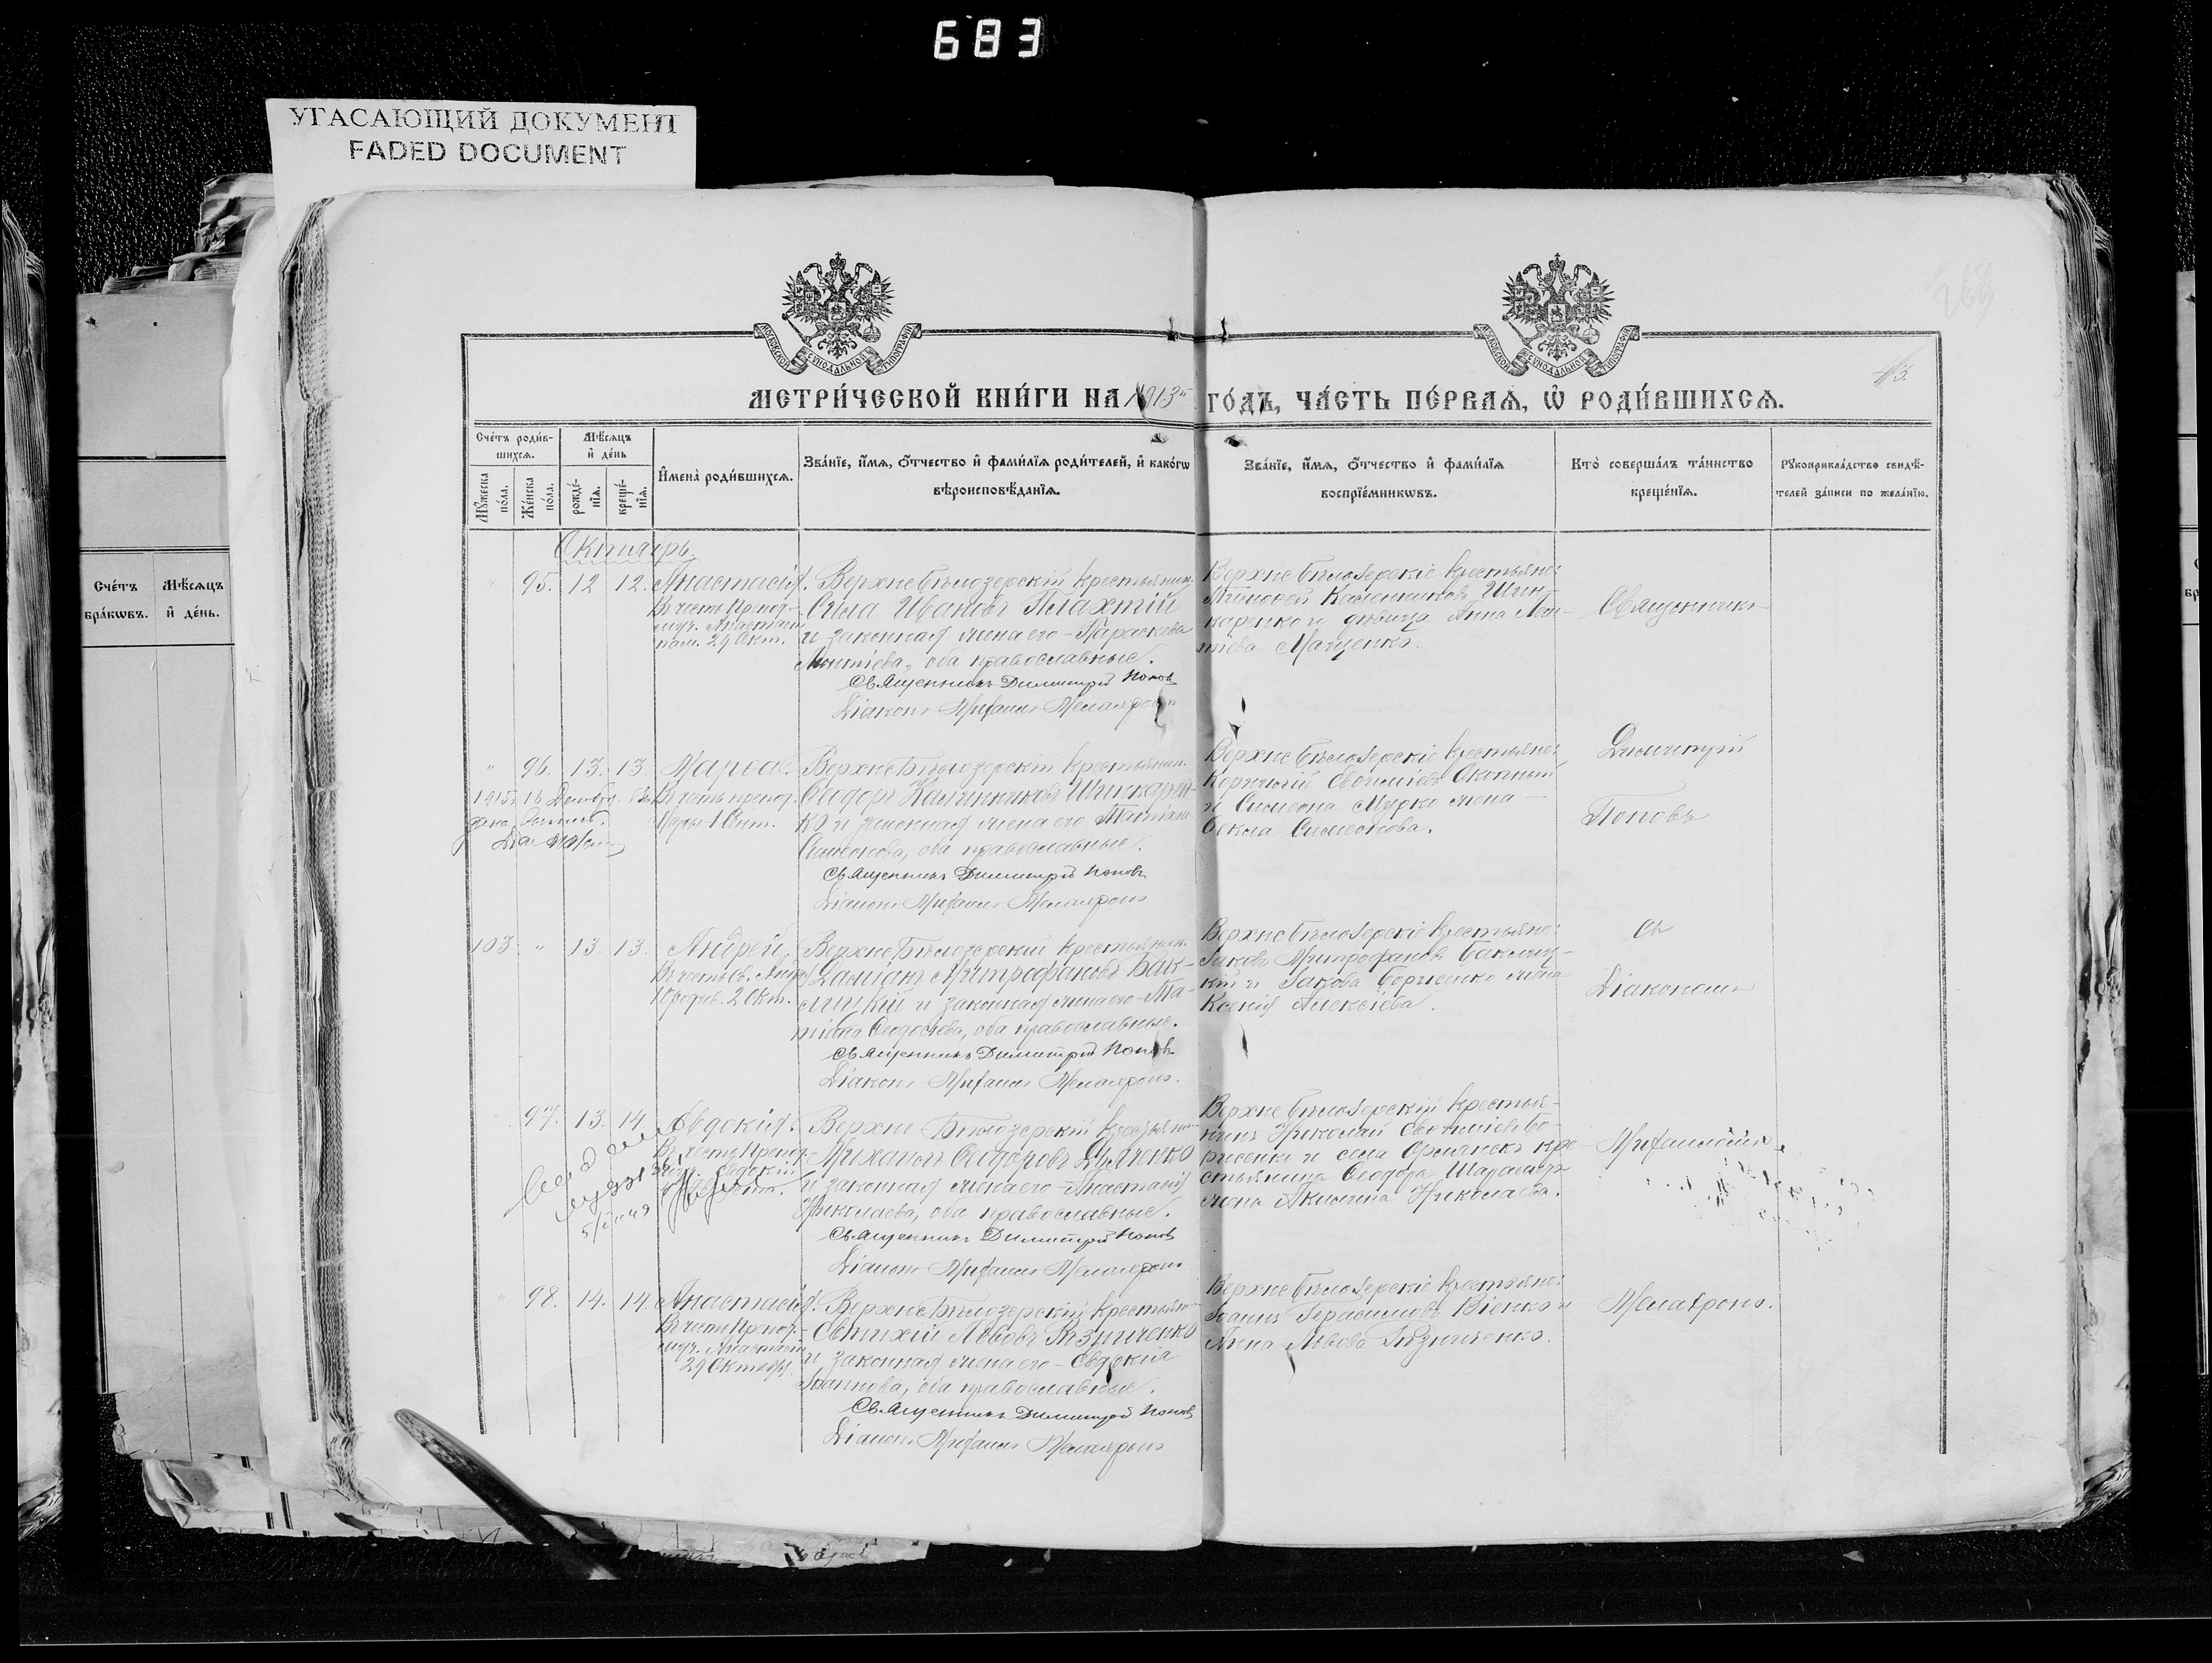 683
УГАСАЮЩИЙ ДОКУМЕНТ
FADED DOCUMENT
МОСКОВСКОЙ СѴНОДАЛЬНОЙ ТИПОГРАФІИ
МОСКОВСКОЙ СѴНОДАЛЬНОЙ ТИПОГРАФІИ
МЕТРИ́ЧЕСКОЙ КНИ́ГИ НА 1913 ГО́ДЪ, ЧА́СТЬ ПЕ́РВАѦ, Ѡ҆ РОДИ́ВШИХСѦ.
Сче́тъ
бра́кѡвъ.
Мѣ́сѧцъ
и҆ де́нь.
Сче́тъ роди́в-
шихсѧ.
Мꙋ́жеска
по́ла.
Же́нска
по́ла.
Мѣ́сѧцъ
и҆ де́нь
рожде́-
нїѧ.
креще́-
нїѧ.
И҆мена̀ роди́вшихсѧ.
Зва́нїе, и҆́мѧ, ѻ҆́тчество и҆ фами́лїѧ роди́телей, и҆ како́гѡ
вѣроисповѣ́данїѧ.
Зва́нїе, и҆́мѧ, ѻ҆́тчество и҆ фами́лїѧ
воспрїе́мникѡвъ.
Кто̀ соверша́лъ та́инство
креще́нїѧ.
Рꙋкоприкла́дство свидѣ́-
телей за́писи по жела́нїю.
Октябрь.
" 95. 12 12. Анастасія.
Въ честь Препод-
муч. Анастасіи
пам. 29 Окт.
Верхне Бѣлозерскій крестьянин.
Сѵла Ивановъ Плахтій
и законная жена его - Параскева
Леонтіева, оба православные.
Священникъ Димитрій Поповъ
Діаконъ Михаилъ
Верхне Бѣлозерскіе крестьяне:
Тимофей Калинниковъ Шин-
каренко и дѣвица Анна Леон-
тіева Маценко.
Священникъ
" 96. 13. 13. Марѳа.
Въ честь препод.
Марѳы 1 Сент.
1915 16 Декабр.
дана выпись.
Верхне Бѣлозерскій крестьянин.
Ѳеодоръ Калинниковъ Шинкарен-
ко и законная жена его Татіана
Симонова, оба православные.
Священникъ Димитрій Поповъ
Діаконъ Михаилъ
Верхне Бѣлозерскіе крестьяне:
Корнилій Евѳиміевъ
и Симеона Мурко жена
Ѳекла Симеонова.
Димитрій
Поповъ
103 " 13. 13. Андрей,
Въ честь св. Андрея
Юродив. 2 Окт.
Верхне Бѣлозерскій крестьянин.
Даміанъ Митрофановъ Бак-
лицкій и законная жена его - Та-
тіана Ѳеодосіева, оба православные.
Священникъ Димитрій Поповъ
Діаконъ Михаилъ
Верхне Бѣлозерскіе крестьяне:
Іаковъ Митрофановъ Баклиц-
кій и Іакова Борисенко жена
Ксенія Алексіева.
съ
Діакономъ
97. 13. 14 Евдокія.
Въ честь Препод-
муч. Евдокіи
Верхне Бѣлозерскій крестьянин
Михаилъ Ѳеодоровъ Дудченко
и законная жена его - Анастасія
Николаева, оба православные.
Священникъ Димитрій Поповъ
Діаконъ Михаилъ
Верхне Бѣлозерскій крестья-
нинъ Николай Евѳиміевъ Бо-
рисенко и села кре-
стьянина Ѳеодора
жена Акилина Николаева.
Михаиломъ
" 98. 14. 14. Анастасія.
Въ честь Препод-
муч. Анастасіи
29 Октября.
Верхне Бѣлозерскій крестьянин
Евтихій Львовъ Рѣзниченко
и законная жена его - Евдокія
Іоаннова, оба православные.
Священникъ Димитрій Поповъ
Діаконъ Михаилъ
Верхне Бѣлозерскіе крестьяне:
Іоаннъ Герасимовъ и
Анна Львова Рѣзниченко.